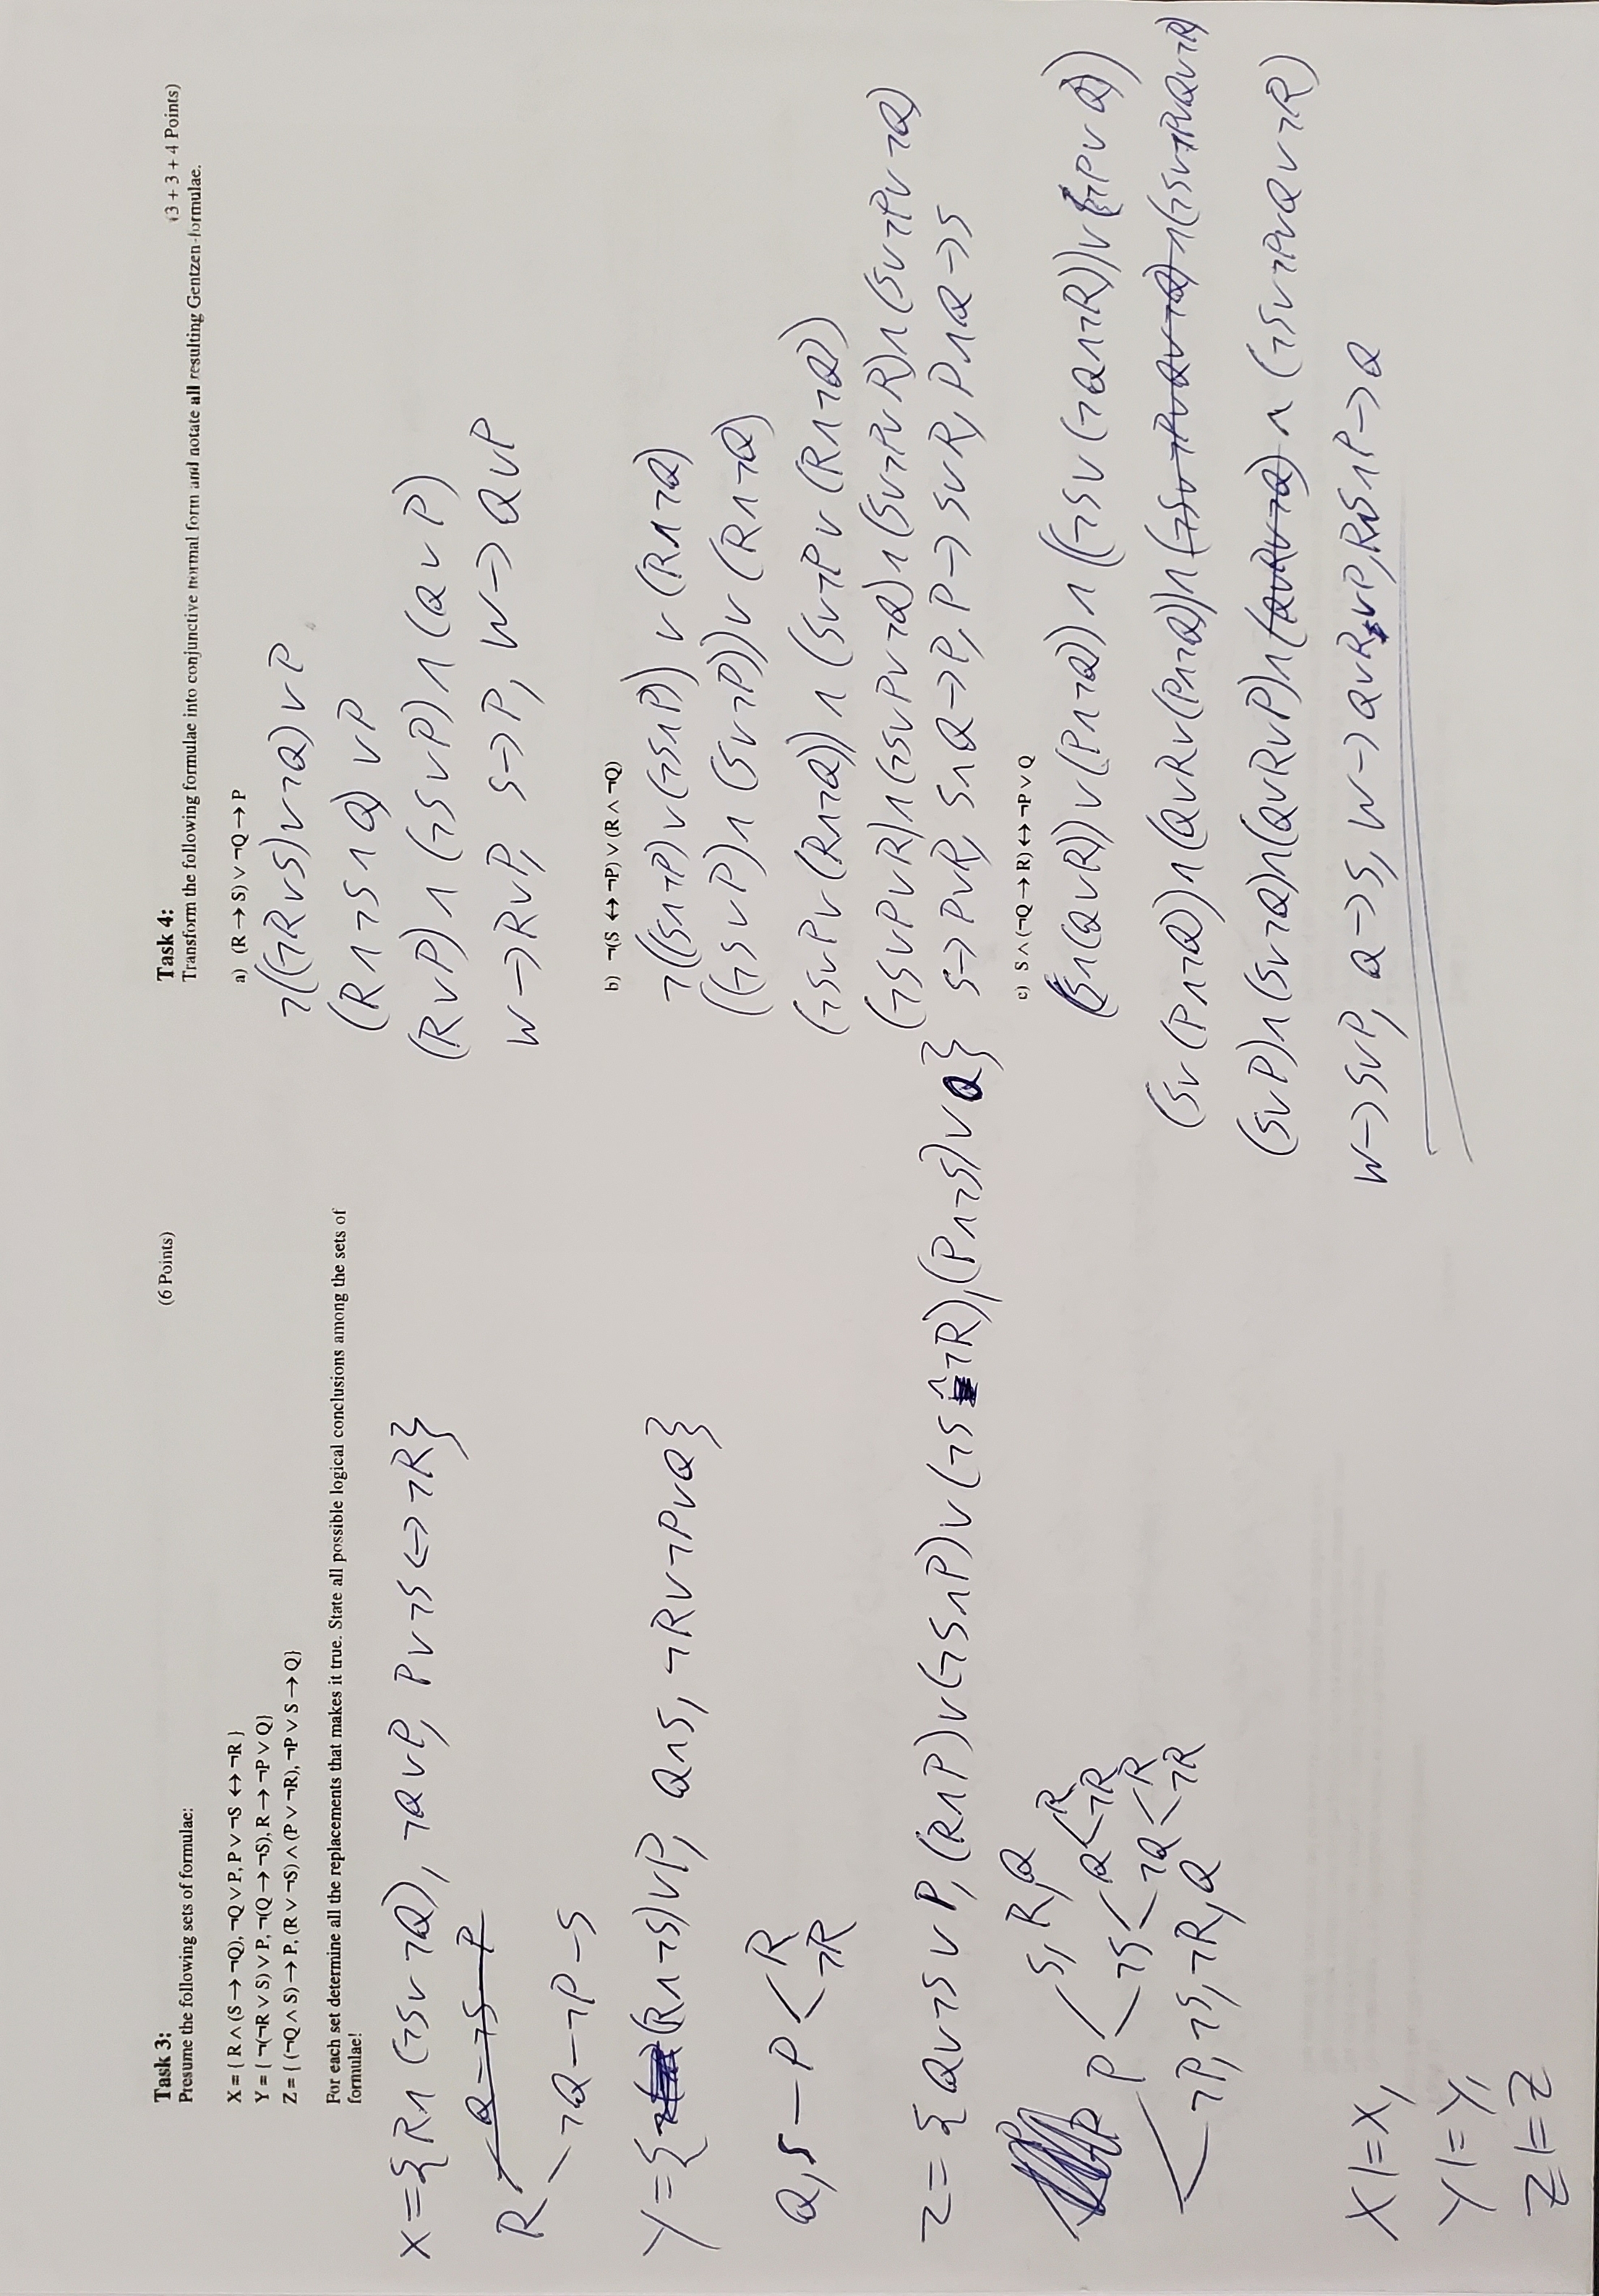 Task 3:
(6 Points)
Presume the following sets of formulae:
X = { R ∧ (S → ¬Q), ¬Q ∨ P, P ∨ ¬S ↔ ¬R }
Y = { ¬(¬R ∨ S) ∨ P, ¬(Q → ¬S), R → ¬P ∨ Q}
Z = { (¬Q ∧ S) → P, (R ∨ ¬S) ∧ (P ∨ ¬R), ¬P ∨ S → Q}
For each set determine all the replacements that makes it true. State all possible logical conclusions among the sets of
formulae!
X={R∧(¬S∨¬Q), ¬Q∨P, P∨¬S<->¬R}
Q-¬S-P
R
¬Q-¬P-S
Y={(R∧¬S)∨P, Q∧S, ¬R∨¬P∨Q}
R
Q,S-P
¬R
Z={Q∨¬S∨P,(R∧P)∨(¬S∧P)∨(¬S∧¬R),(P∧¬S)∨Q}
S, R,Q
R
P
Q
¬R
¬S
R
¬Q
¬R
¬P,¬S,¬R,Q
X|=X,
Y|=Y,
Z|=Z
Task 4:
(3 + 3 + 4 Points)
Transform the following formulae into conjunctive normal form and notate all resulting Gentzen-formulae.
a) (R → S) ∨ ¬Q → P
¬((¬R∨S)∨¬Q)∨P
(R∧¬S∧Q)∨P
(R∨P)∧(¬S∨P)∧(Q∨P)
W->R∨P, S->P, W->Q∨P
b) ¬(S ↔ ¬P) ∨ (R ∧ ¬Q)
¬((S∧¬P)∨(¬S∧P))∨(R∧¬Q)
((¬S∨P)∧(S∨¬P))∨(R∧¬Q)
(¬S∨P∨(R∧¬Q))∧(S∨¬P∨(R∧¬Q))
(¬S∨P∨R)∧(¬S∨P∨¬Q)∧(S∨¬P∨R)∧(S∨¬P∨¬Q)
S->P∨R, S∧Q->P, P->S∨R, P∧Q->S
c) S ∧ (¬Q → R) ↔ ¬P ∨ Q
(S∧(Q∨R))∨(P∧¬Q))∧((¬S∨(¬Q∧¬R))∨(¬P∨Q))
(S∨(P∧¬Q))∧(Q∨R∨(P∧¬Q))∧(¬S∨¬P∨Q∨¬Q)∧(¬S∨¬P∨Q∨¬R)
(S∨P)∧(S∨¬Q)∧(Q∨R∨P)∧(Q∨R∨¬Q)∧(¬S∨¬P∨Q∨¬R)
W->S∨P, Q->S, W->Q∨R∨P,R∧S∧P->Q